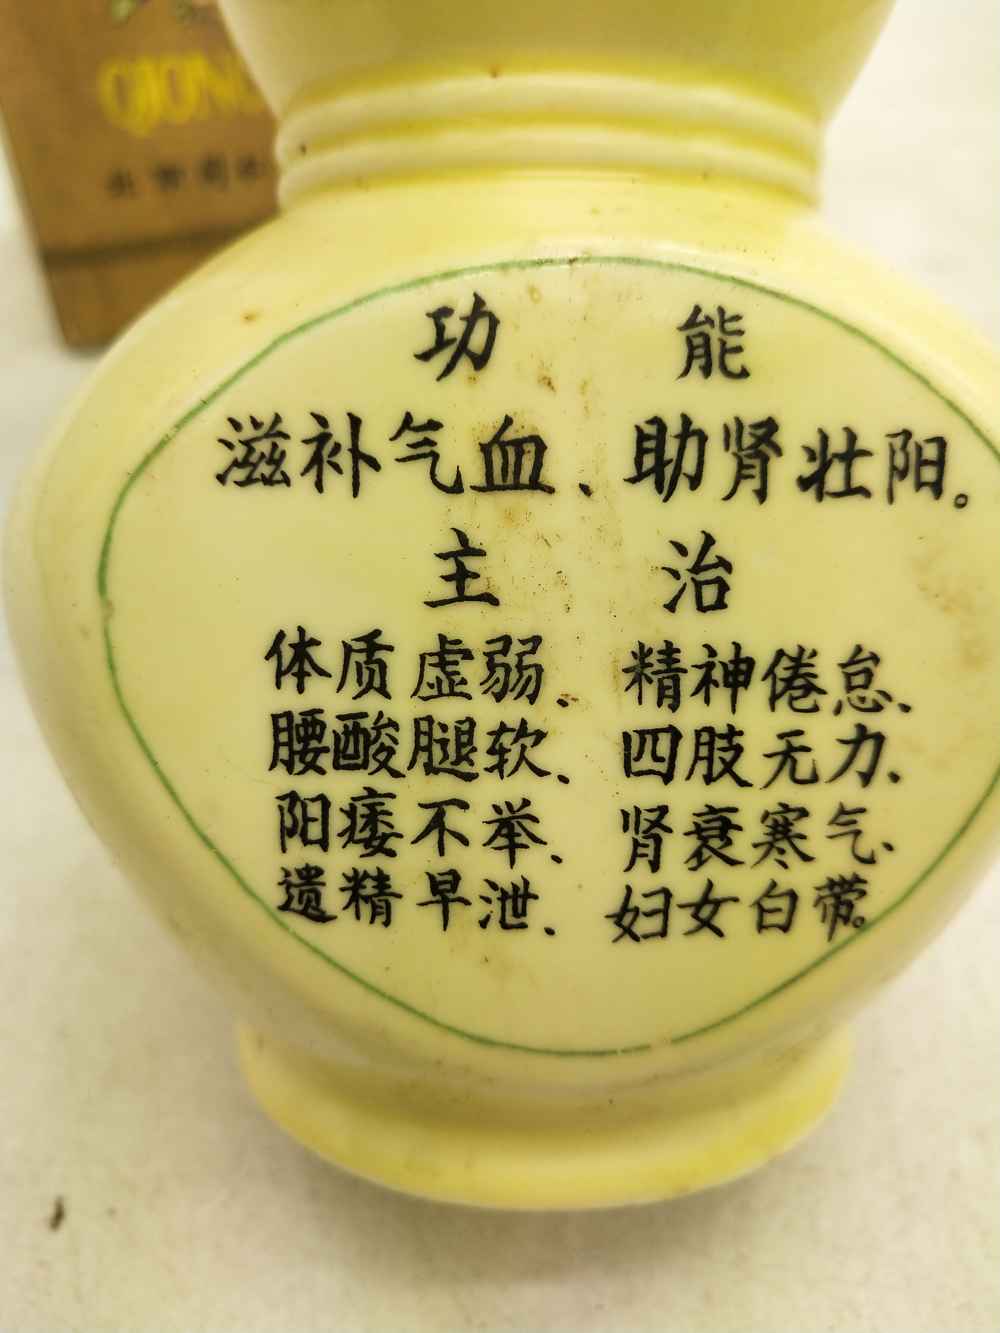 QIONG
功能
滋补气血、助肾壮阳。
主治
体质虚弱、精神倦怠、
腰酸腿软、四肢无力、
阳痿不举、肾衰寒气、
遗精早泄、妇女白带。